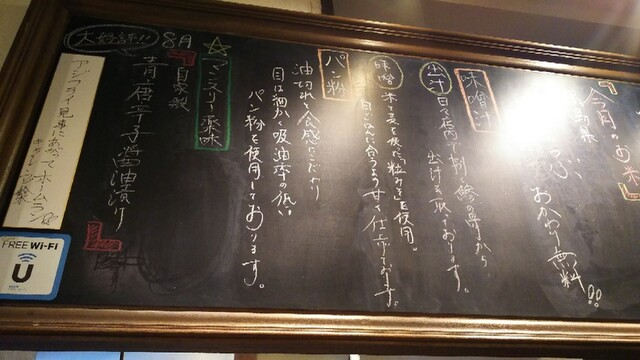 今月のお米
おかわり無料!!
味噌汁
出汁
日々店内で削る鰹の厚削から
出汁を取っております。
味噌
米麹を使た「粒みそ」を使用。
目ごはんに合うよう甘く仕上げております。
パン粉
油切れと食感にこだわり
目は細かく吸油率の低い
パン粉を使用しております。
マンスリー薬味
8月
大好評!!
自家製
青唐辛子醤油漬け
アジフライ見事にあがって ホームラン
FREE Wi-Fi
U